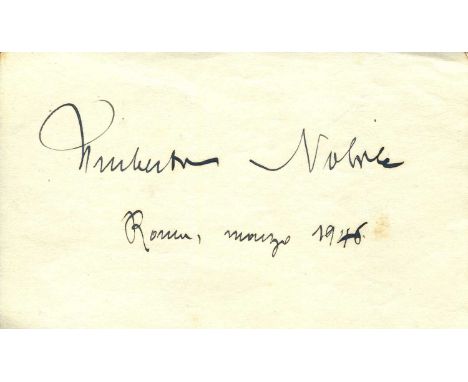 Umberto Nobile
Roma, marzo 1946